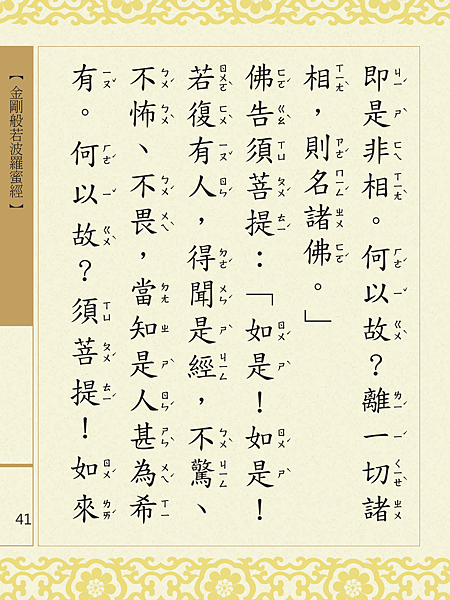 即是非相。何以故？離一切諸
相，則名諸佛。」
佛告須菩提：「如是！如是！
若復有人，得聞是經，不驚、
不怖、不畏，當知是人甚為希
有。何以故？須菩提！如來
【金剛般若波羅蜜經】
41